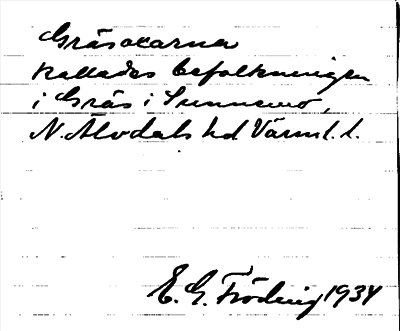 Gräsoxarna
kallades befolkningen
i Gräs i Sunnemo,
N. Älvdals hd Värml. l.
E. G. Fröding 1934